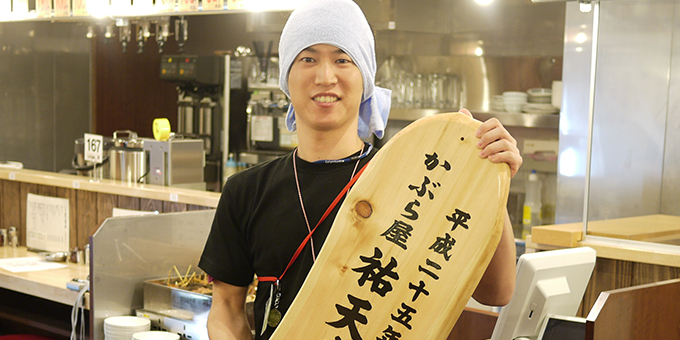 平成二十五年
かぶら屋 祐天
167